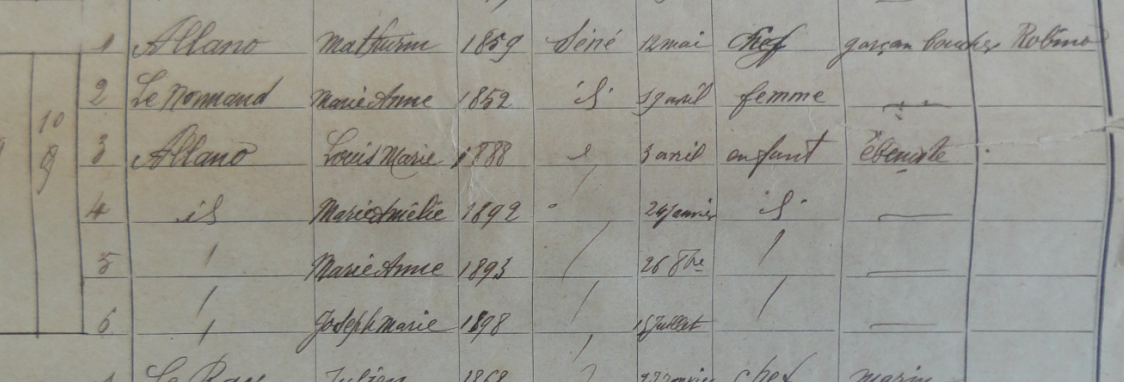 1 Allano Mathurin 1859 Séné 12 mai Chef garçon boucher Robino
2 Le Normand Marie Anne 1859 id 19 avril femme
10
3 Allano Louis Marie 1888 3 avril enfant ébéniste
9
4 id Marie Amélie 1892 janvier id
5 Marie Anne 1893 26 8bre
6 Joseph Marie 1898 15 Juillet
1 Le Ray Julien 1868 chef marin